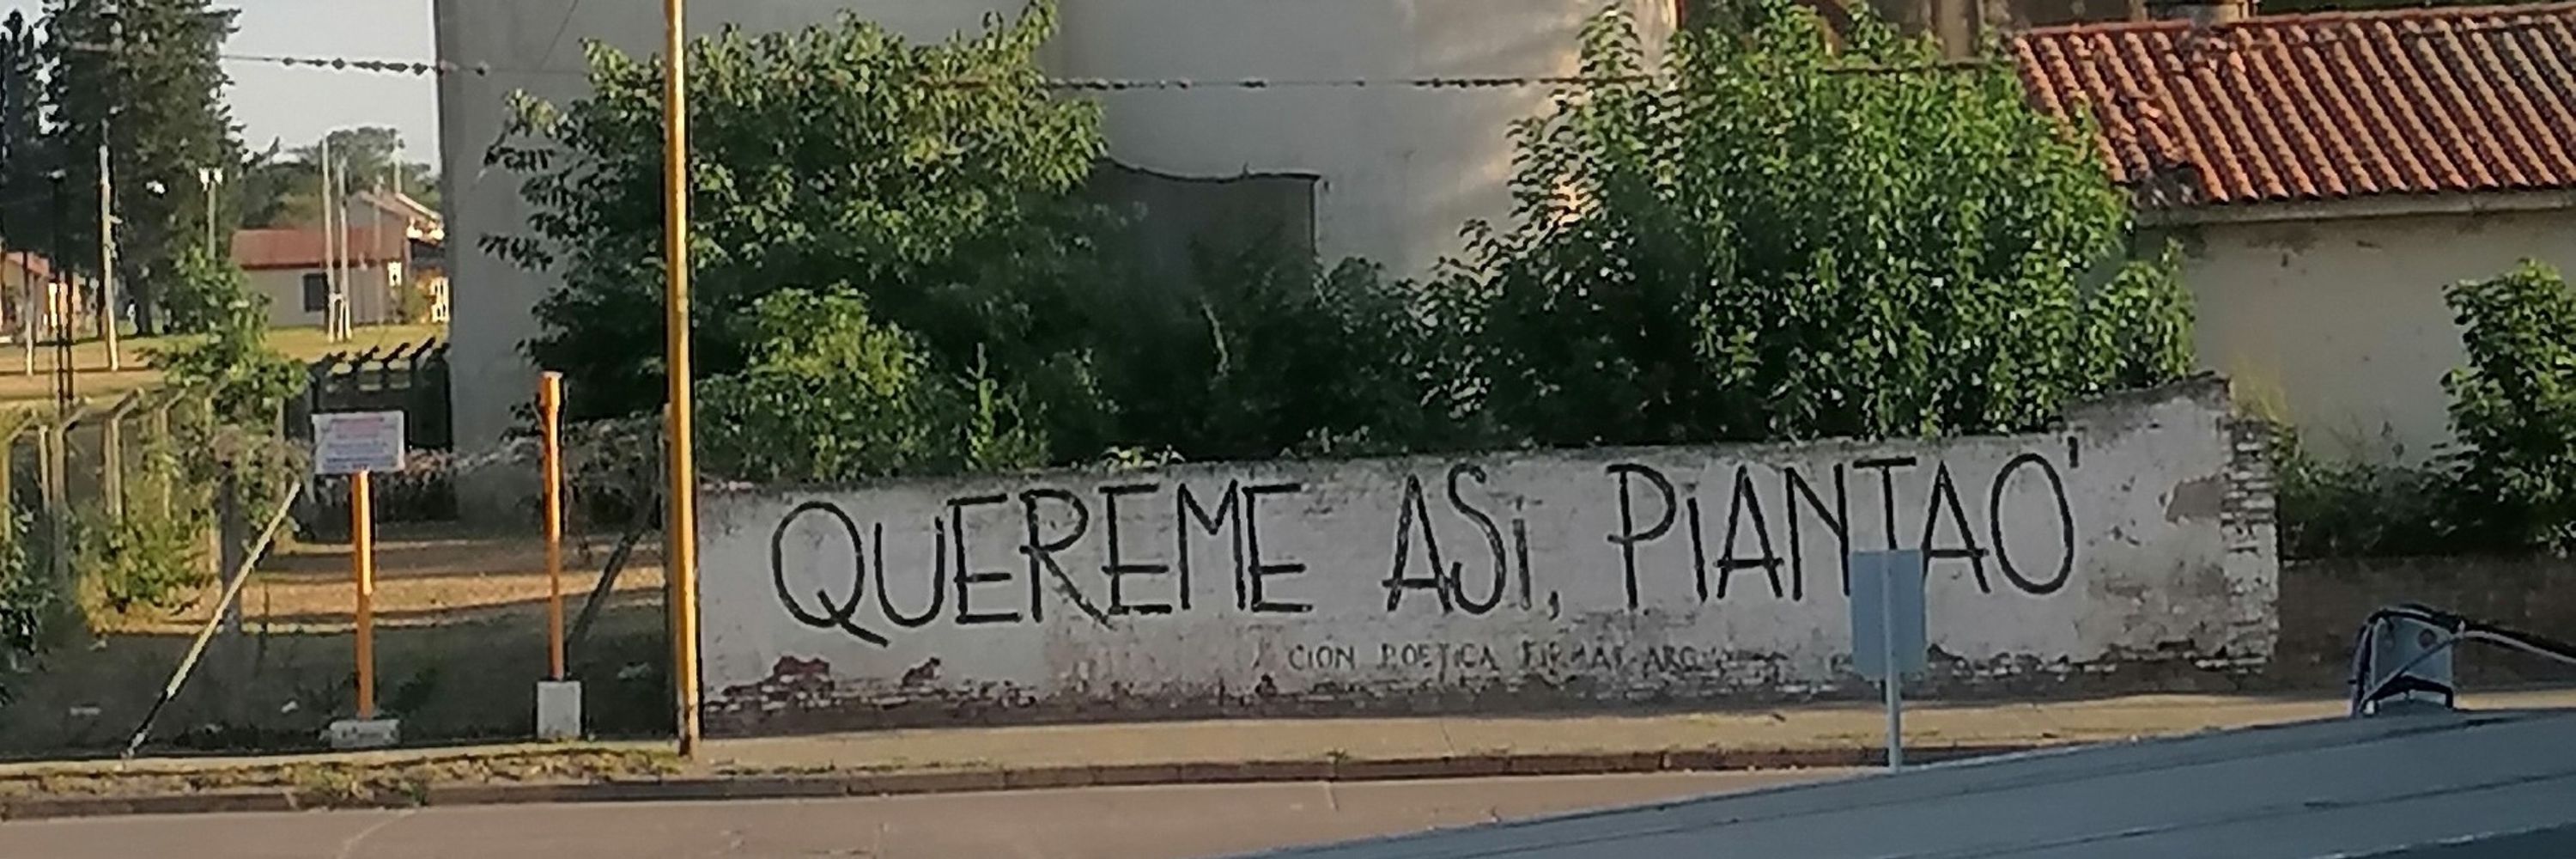 QUEREME ASi, PiANTAO'
CION POETICA FIRMAT ARG